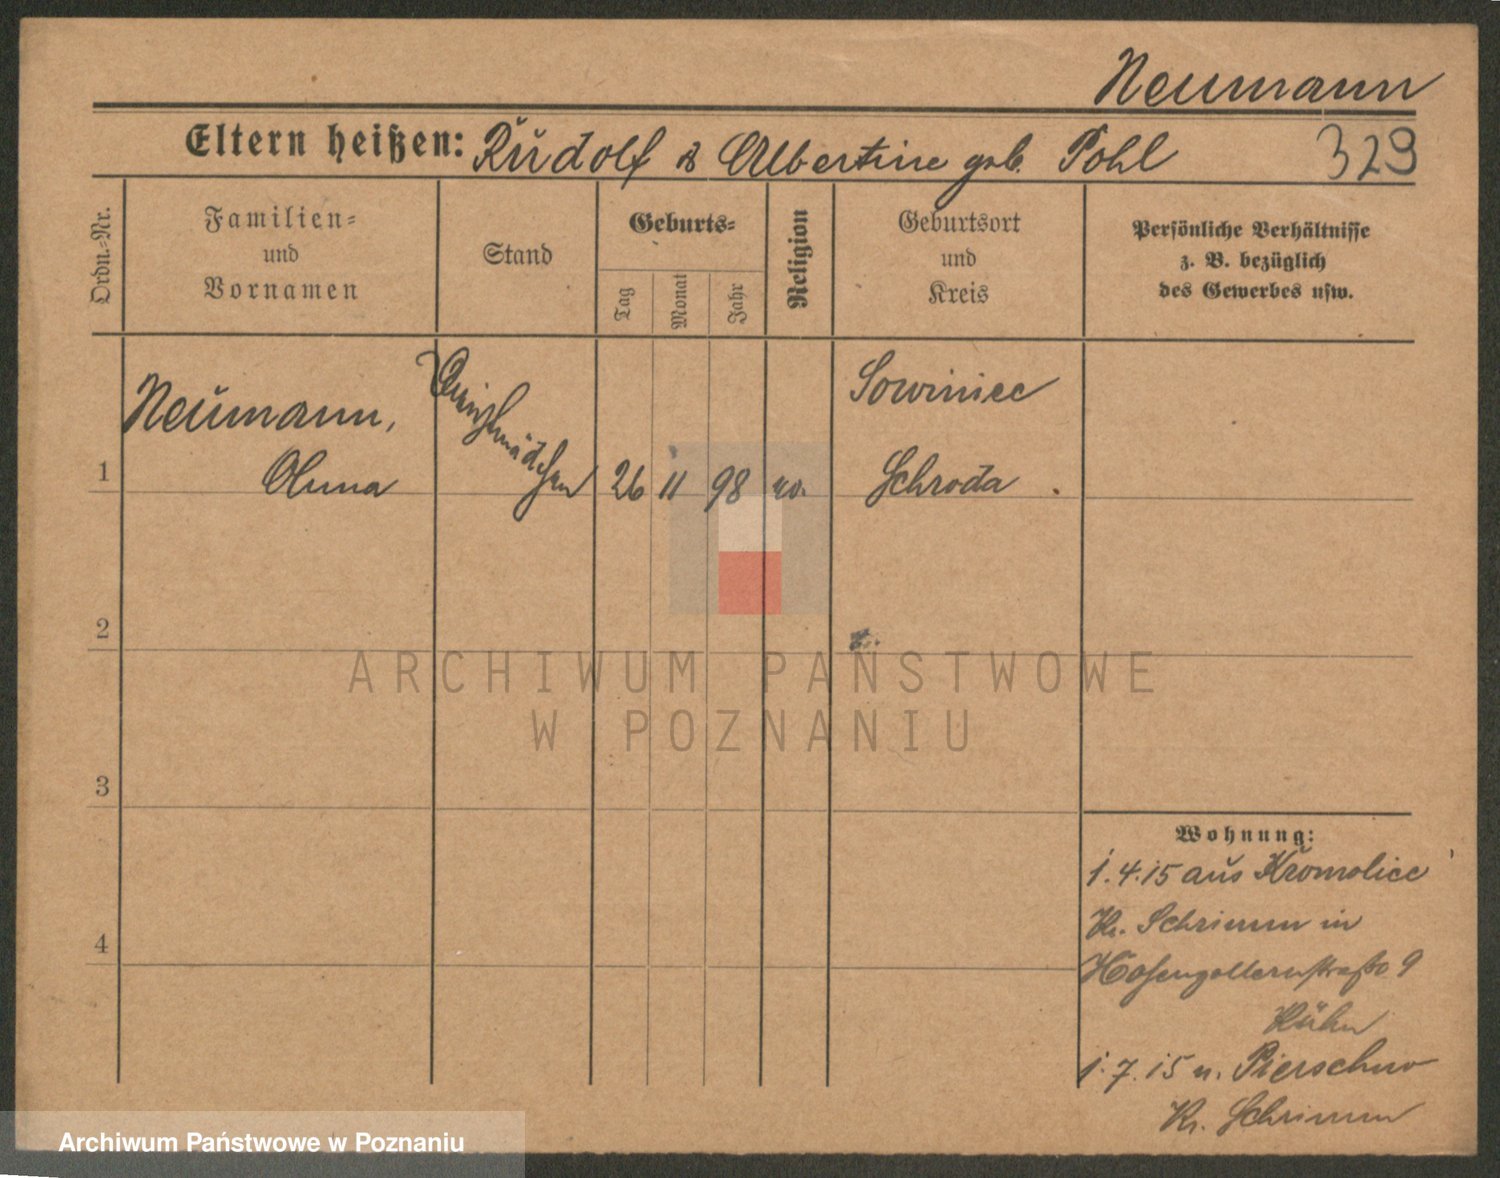 Neumann
Eltern heißen: Rudolf & Albertine geb. Pohl 329
Ordn.=Nr.
Familien=
und
Vornamen
Stand
Geburts=
Tag
Monat
Jahr
Religion
Geburtsort
und
Kreis
Persönliche Verhältnisse
z. B. bezüglich
des Gewerbes usw.
1
Neumann,
Anna
26 11 98 ev.
Sowiniec
Schroda
2
3
4
ARCHIWUM PAŃSTWOWE
W POZNANIU
Wohnung:
1.4.15 aus Kromolice
Kr. Schrimm in
Hohenzollernstraße 9
Kühn
1.7.15 n.
Kr. Schrimm
Archiwum Państwowe w Poznaniu